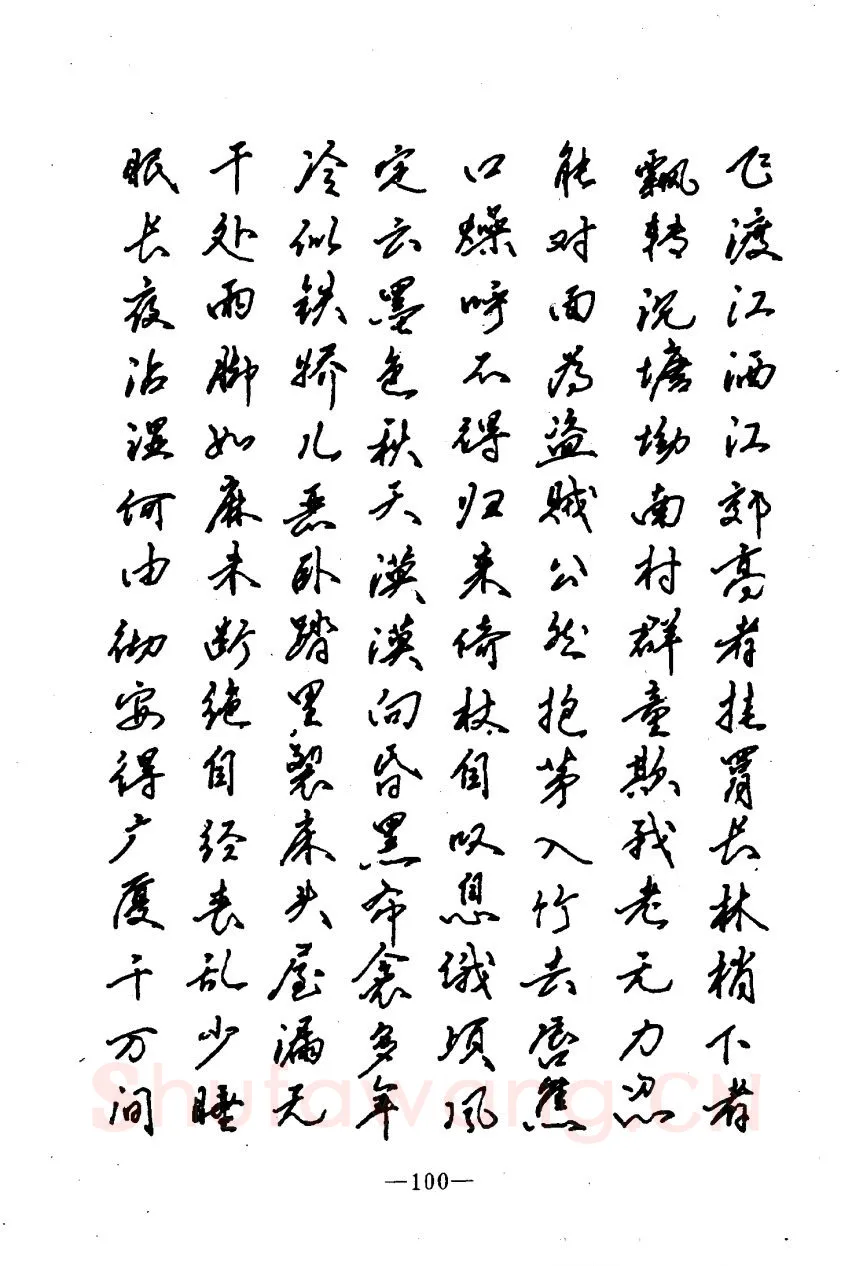 飞渡江洒江郊高者挂罥长林梢下者
飘转沉塘坳南村群童欺我老无力忍
能对面为盗贼公然抱茅入竹去唇焦
口燥呼不得归来倚杖自叹息俄顷风
定云墨色秋天漠漠向昏黑布衾多年
冷似铁娇儿恶卧踏里裂床头屋漏无
干处雨脚如麻未断绝自经丧乱少睡
眠长夜沾湿何由彻安得广厦千万间
Shufawang.CN
—100—